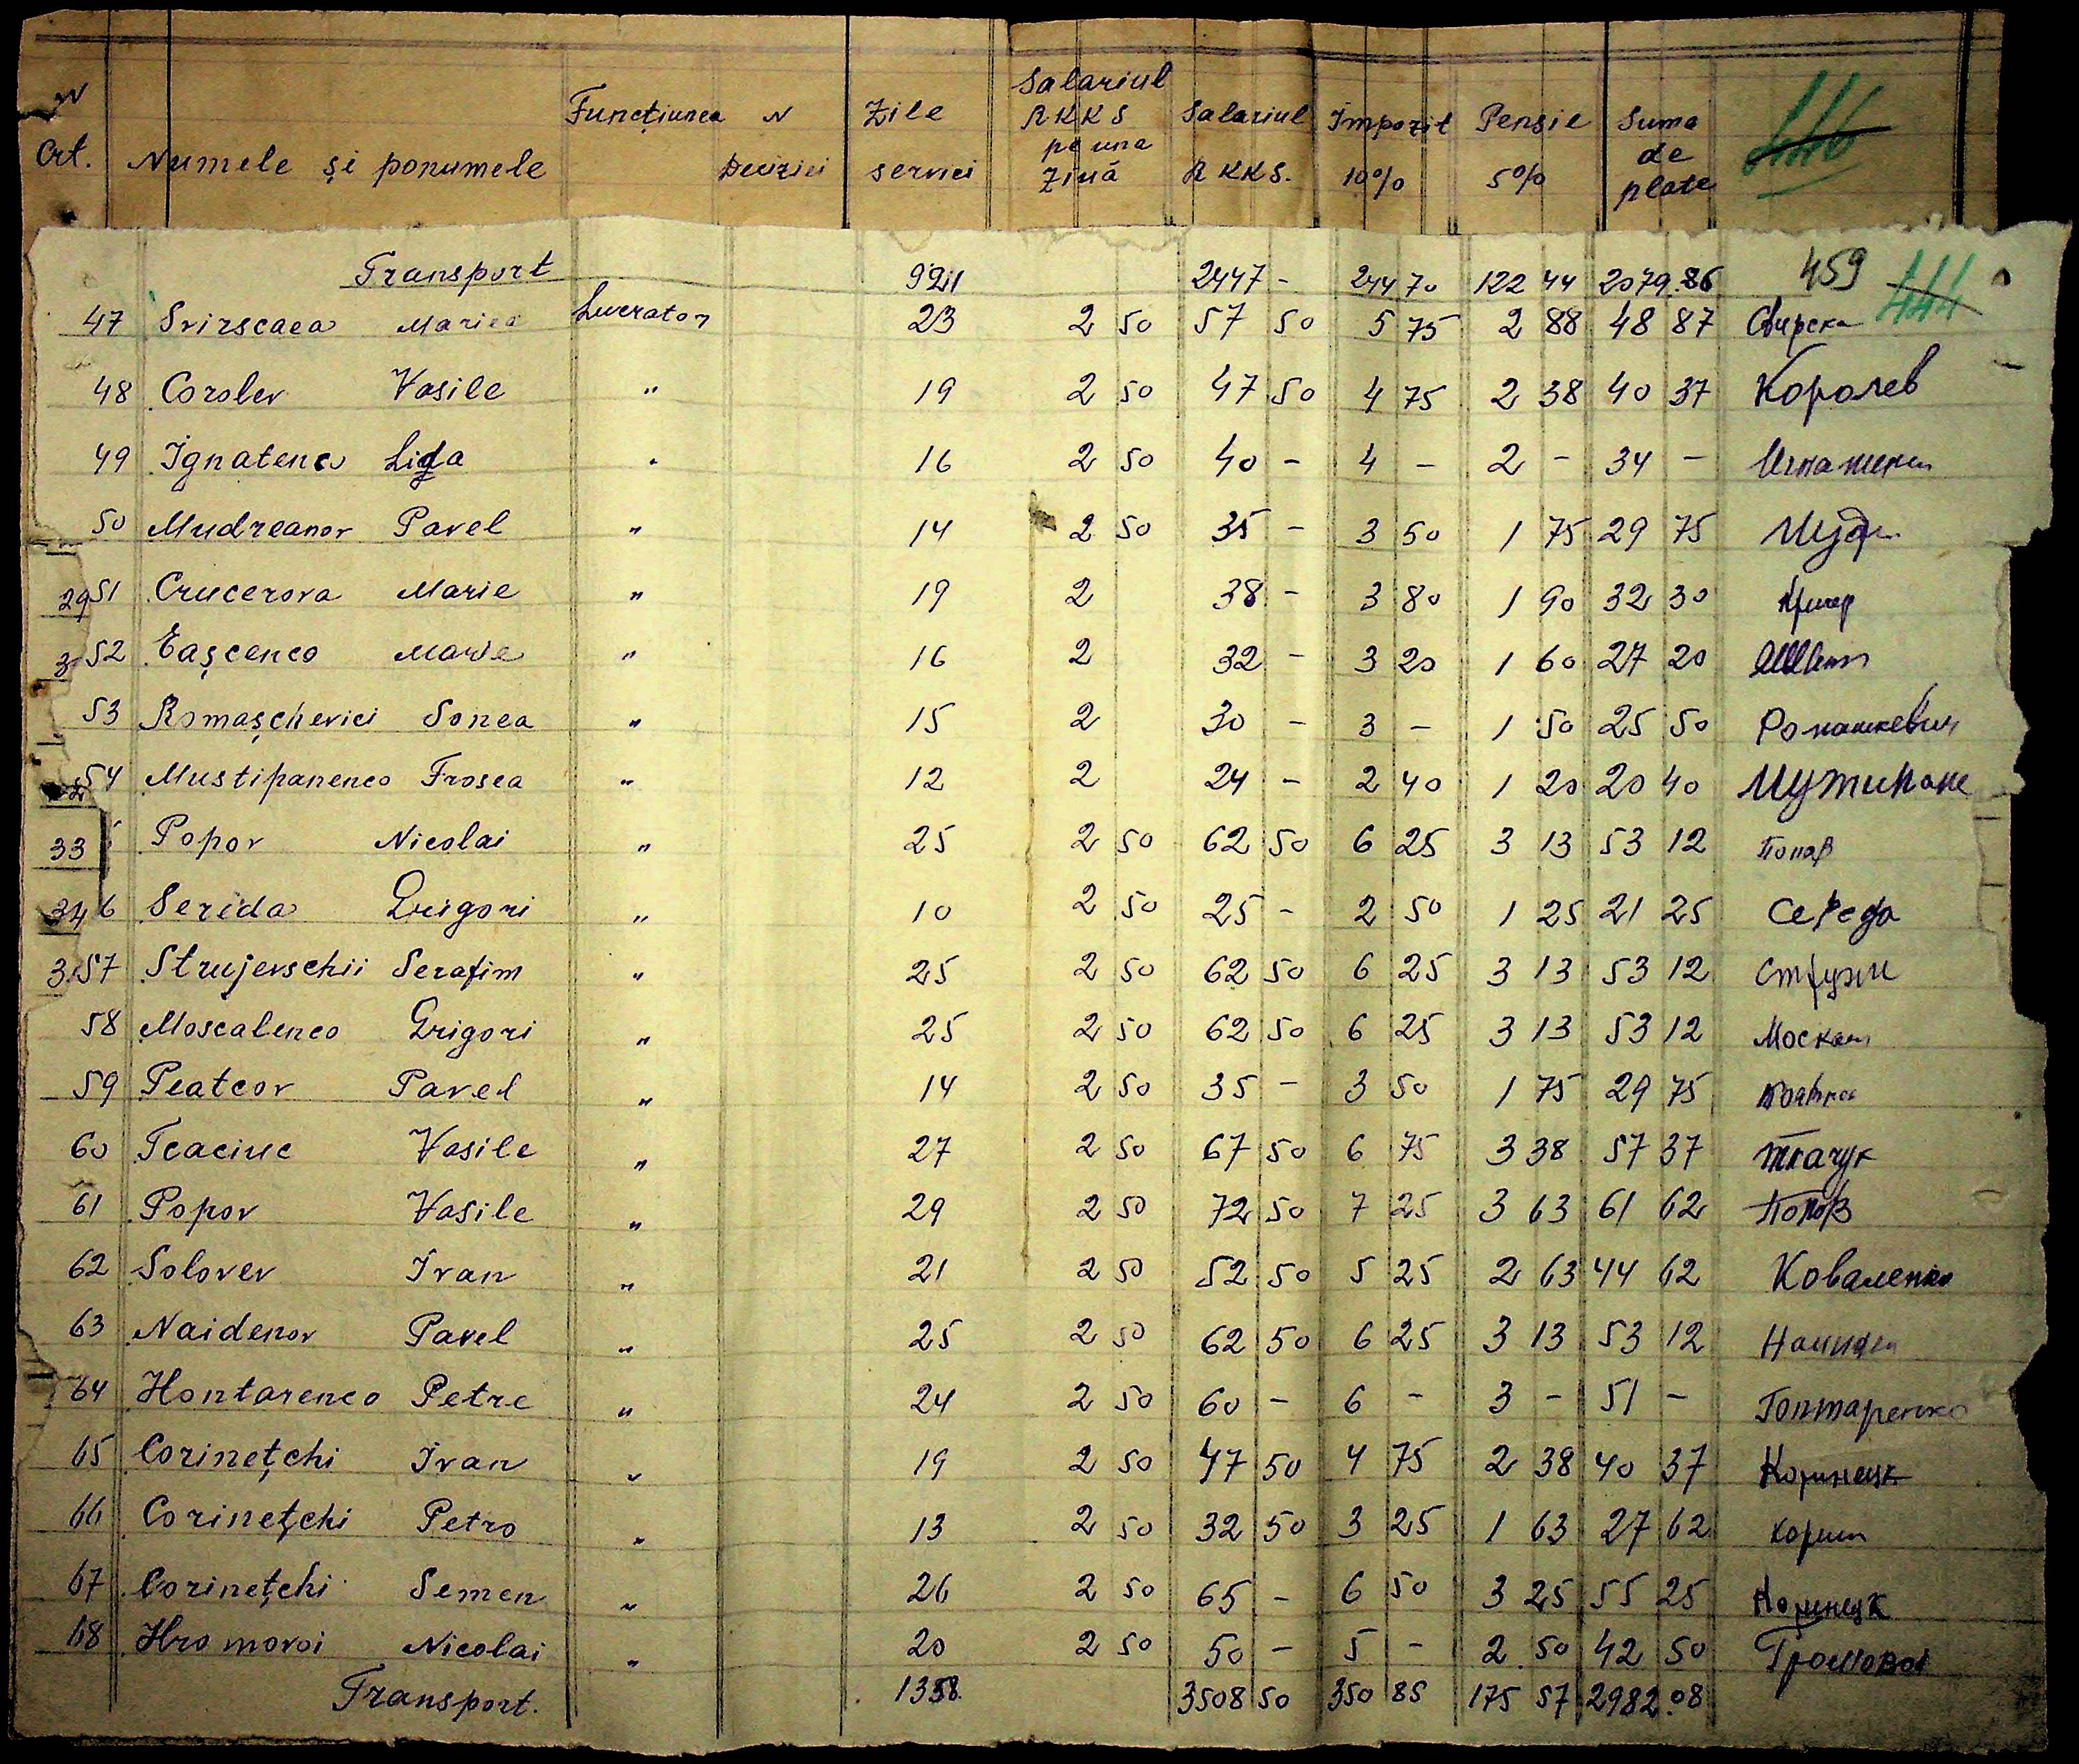 N Crt. Numele și ponumele Funcțiunea N Deciziei Zile servici Salariul RKKS pe una ziuă Salariul RKKS. Impozit 10% Pensie 5% Suma de plate 446
Transport 921 2447 - 244 70 122 44 2079.86 459 444
47 Svirscaea Mariea Lucrator 23 2 50 57 50 5 75 2 88 48 87 Свирска
48 Corolev Vasile " 19 2 50 47 50 4 75 2 38 40 37 Королев
49 Ignatenco Lida " 16 2 50 40 - 4 - 2 - 34 -
50 Mudreanov Pavel " 14 2 50 35 - 3 50 1 75 29 75 Мудр
29 51 Crucerova Marie " 19 2 38 - 3 80 1 90 32 30
3 52 Eașcenco Marie " 16 2 32 - 3 20 1 60 27 20
53 Romașchevici Sonea " 15 2 30 - 3 - 1 50 25 50 Ромашкевич
54 Mustipanenco Frosea " 12 2 24 - 2 40 1 20 20 40 Мужипане
33 Popov Nicolai " 25 2 50 62 50 6 25 3 13 53 12 Попов
34 6 Serida Grigori " 10 2 50 25 - 2 50 1 25 21 25 Середа
3 57 Strujevschii Serafim " 25 2 50 62 50 6 25 3 13 53 12 Струж
58 Moscalenco Grigori " 25 2 50 62 50 6 25 3 13 53 12 Москал
59 Peatcov Pavel " 14 2 50 35 - 3 50 1 75 29 75
60 Tcaciuc Vasile " 27 2 50 67 50 6 75 3 38 57 37 Ткачук
61 Popov Vasile " 29 2 50 72 50 7 25 3 63 61 62 Попов
62 Solovev Ivan " 21 2 50 52 50 5 25 2 63 44 62 Коваленко
63 Naidenov Pavel " 25 2 50 62 50 6 25 3 13 53 12
64 Hontarenco Petre " 24 2 50 60 - 6 - 3 - 51 - Гонтаренко
65 Corinețchi Ivan " 19 2 50 47 50 4 75 2 38 40 37 Коринецк
66 Corinețchi Petro " 13 2 50 32 50 3 25 1 63 27 62 Корин
67 Corinețchi Semen " 26 2 50 65 - 6 50 3 25 55 25 Коринецк
68 Hromovoi Nicolai " 20 2 50 50 - 5 - 2 50 42 50 Громовой
Transport. 1358. 3508 50 350 85 175 57 2982.08